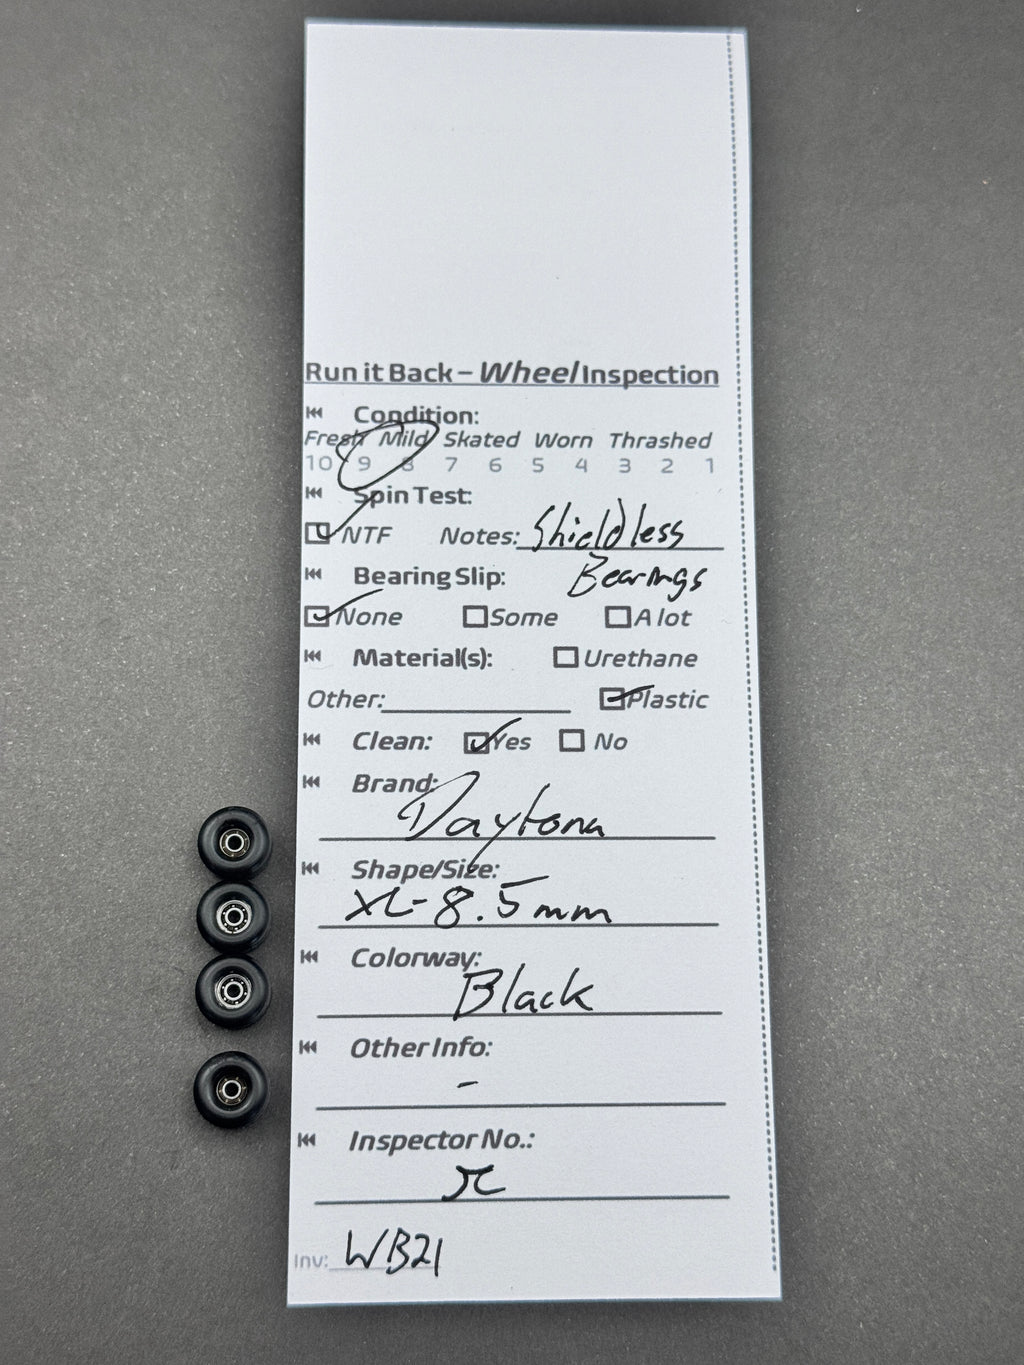 Run it Back – Wheel Inspection
Condition:
Fresh Mild Skated Worn Thrashed
10 9 8 7 6 5 4 3 2 1
Spin Test:
NTF Notes: Shieldless
Bearing Slip: Bearings
None Some A lot
Material(s): Urethane
Other: Plastic
Clean: Yes No
Brand:
Daytona
Shape/Size:
XL-8.5mm
Colorway:
Black
Other Info:
-
Inspector No.:
π
Inv: WB21